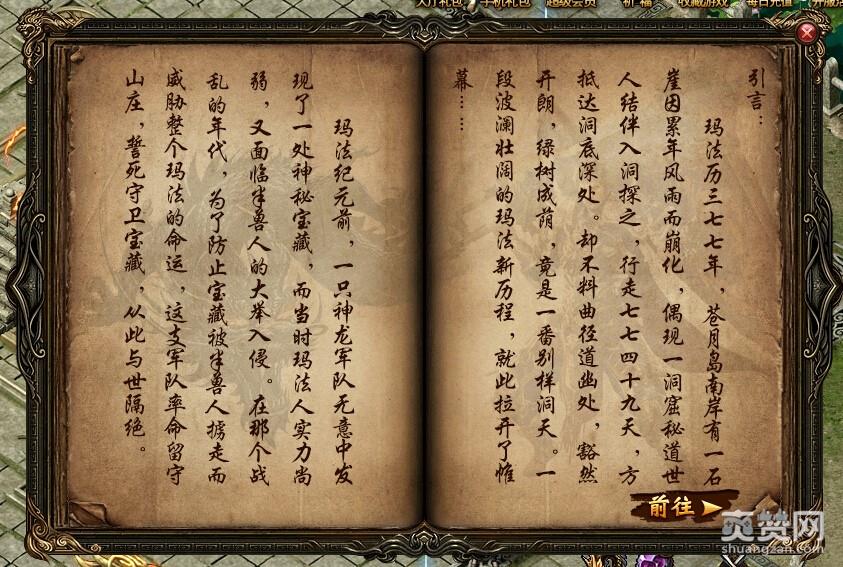 大厅礼包 手机礼包 超级会员 祈福 收藏游戏 每日充值
引言：
玛法历三七七年，苍月岛南岸有一石
崖因累年风雨而崩化，偶现一洞窟秘道世
人结伴入洞探之，行走七七四十九天，方
抵达洞底深处。却不料曲径道幽处，豁然
开朗，绿树成荫，竟是一番别样洞天。一
段波澜壮阔的玛法新历程，就此拉开了帷
幕……
玛法纪元前，一只神龙军队无意中发
现了一处神秘宝藏，而当时玛法人实力尚
弱，又面临半兽人的大举入侵。在那个战
乱的年代，为了防止宝藏被半兽人掳走而
威胁整个玛法的命运，这支军队率命留守
山庄，誓死守卫宝藏，从此与世隔绝。
前往
爽赞网
shuangzan.com